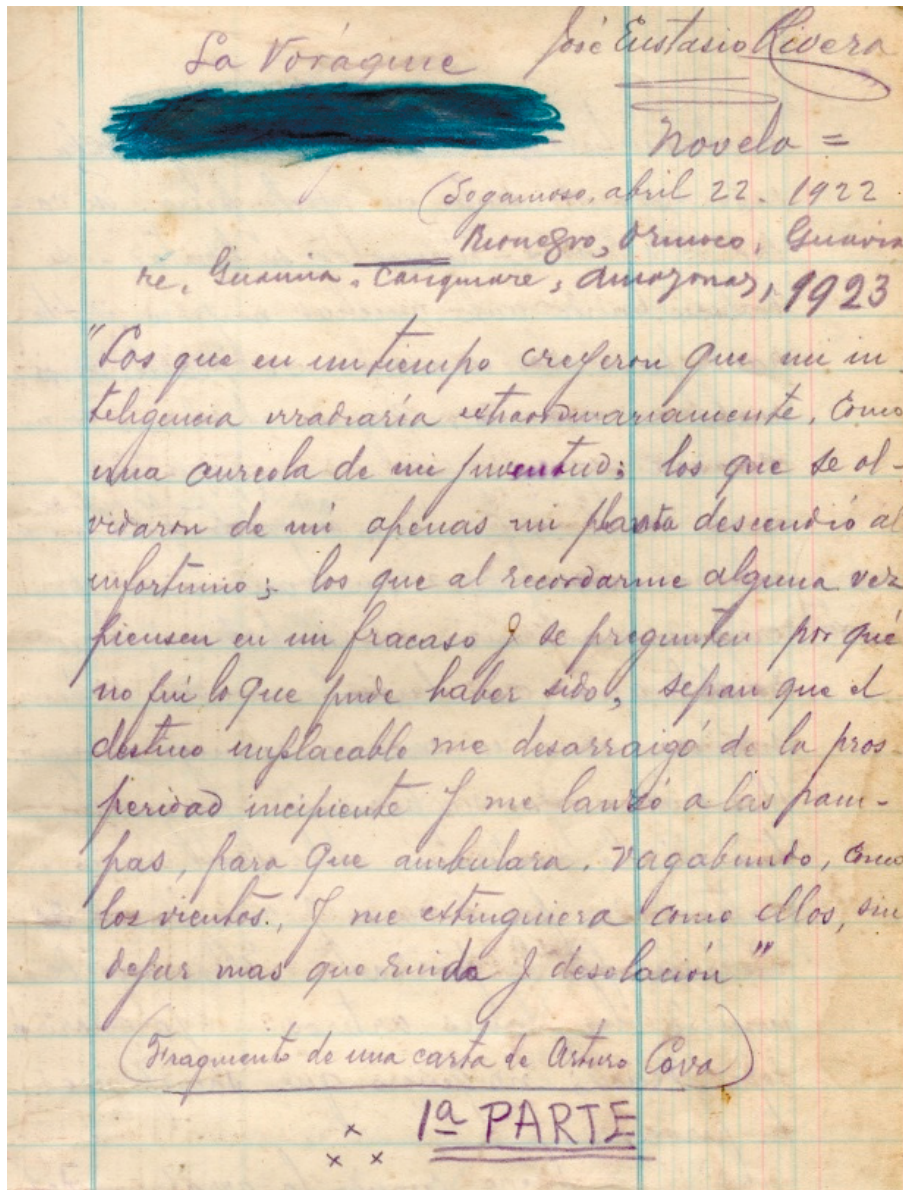 La Vorágine José Eustasio Rivera
Novela =
(Sogamoso, abril 22. 1922
Rionegro, Orinoco, Guavia
re, Guainía, Casiquiare, Amazonas, 1923
"Los que en un tiempo creyeron que mi in
teligencia irradiaría extraordinariamente, como
una aureola de mi juventud; los que se ol-
vidaron de mí apenas mi planta descendió al
infortunio; los que al recordarme alguna vez
piensen en mi fracaso y se pregunten por qué
no fui lo que pude haber sido, sepan que el
destino implacable me desarraigó de la pros
peridad incipiente y me lanzó a las pam-
pas, para que ambulara, vagabundo, como
los vientos, y me extinguiera como ellos, sin
dejar mas que ruido y desolación"
(Fragmento de una carta de Arturo Cova)
1ª PARTE
x
x x